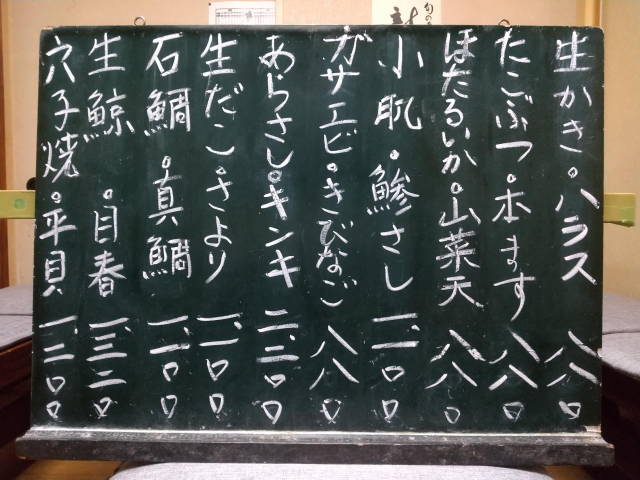 生かき。ハラス 八八〇
たこぶつ。本ます 八八〇
ほたるいか。山菜天 八八〇
小肌。鯵さし 一、一〇〇
ガサエビ。きびなご 八八〇
あらさし。キンキ 二、三〇〇
生だこ。さより 一、一〇〇
石鯛。真鯛 一、一〇〇
生鯨。目春 一、三二〇
穴子焼。平貝 一、二〇〇
旬の